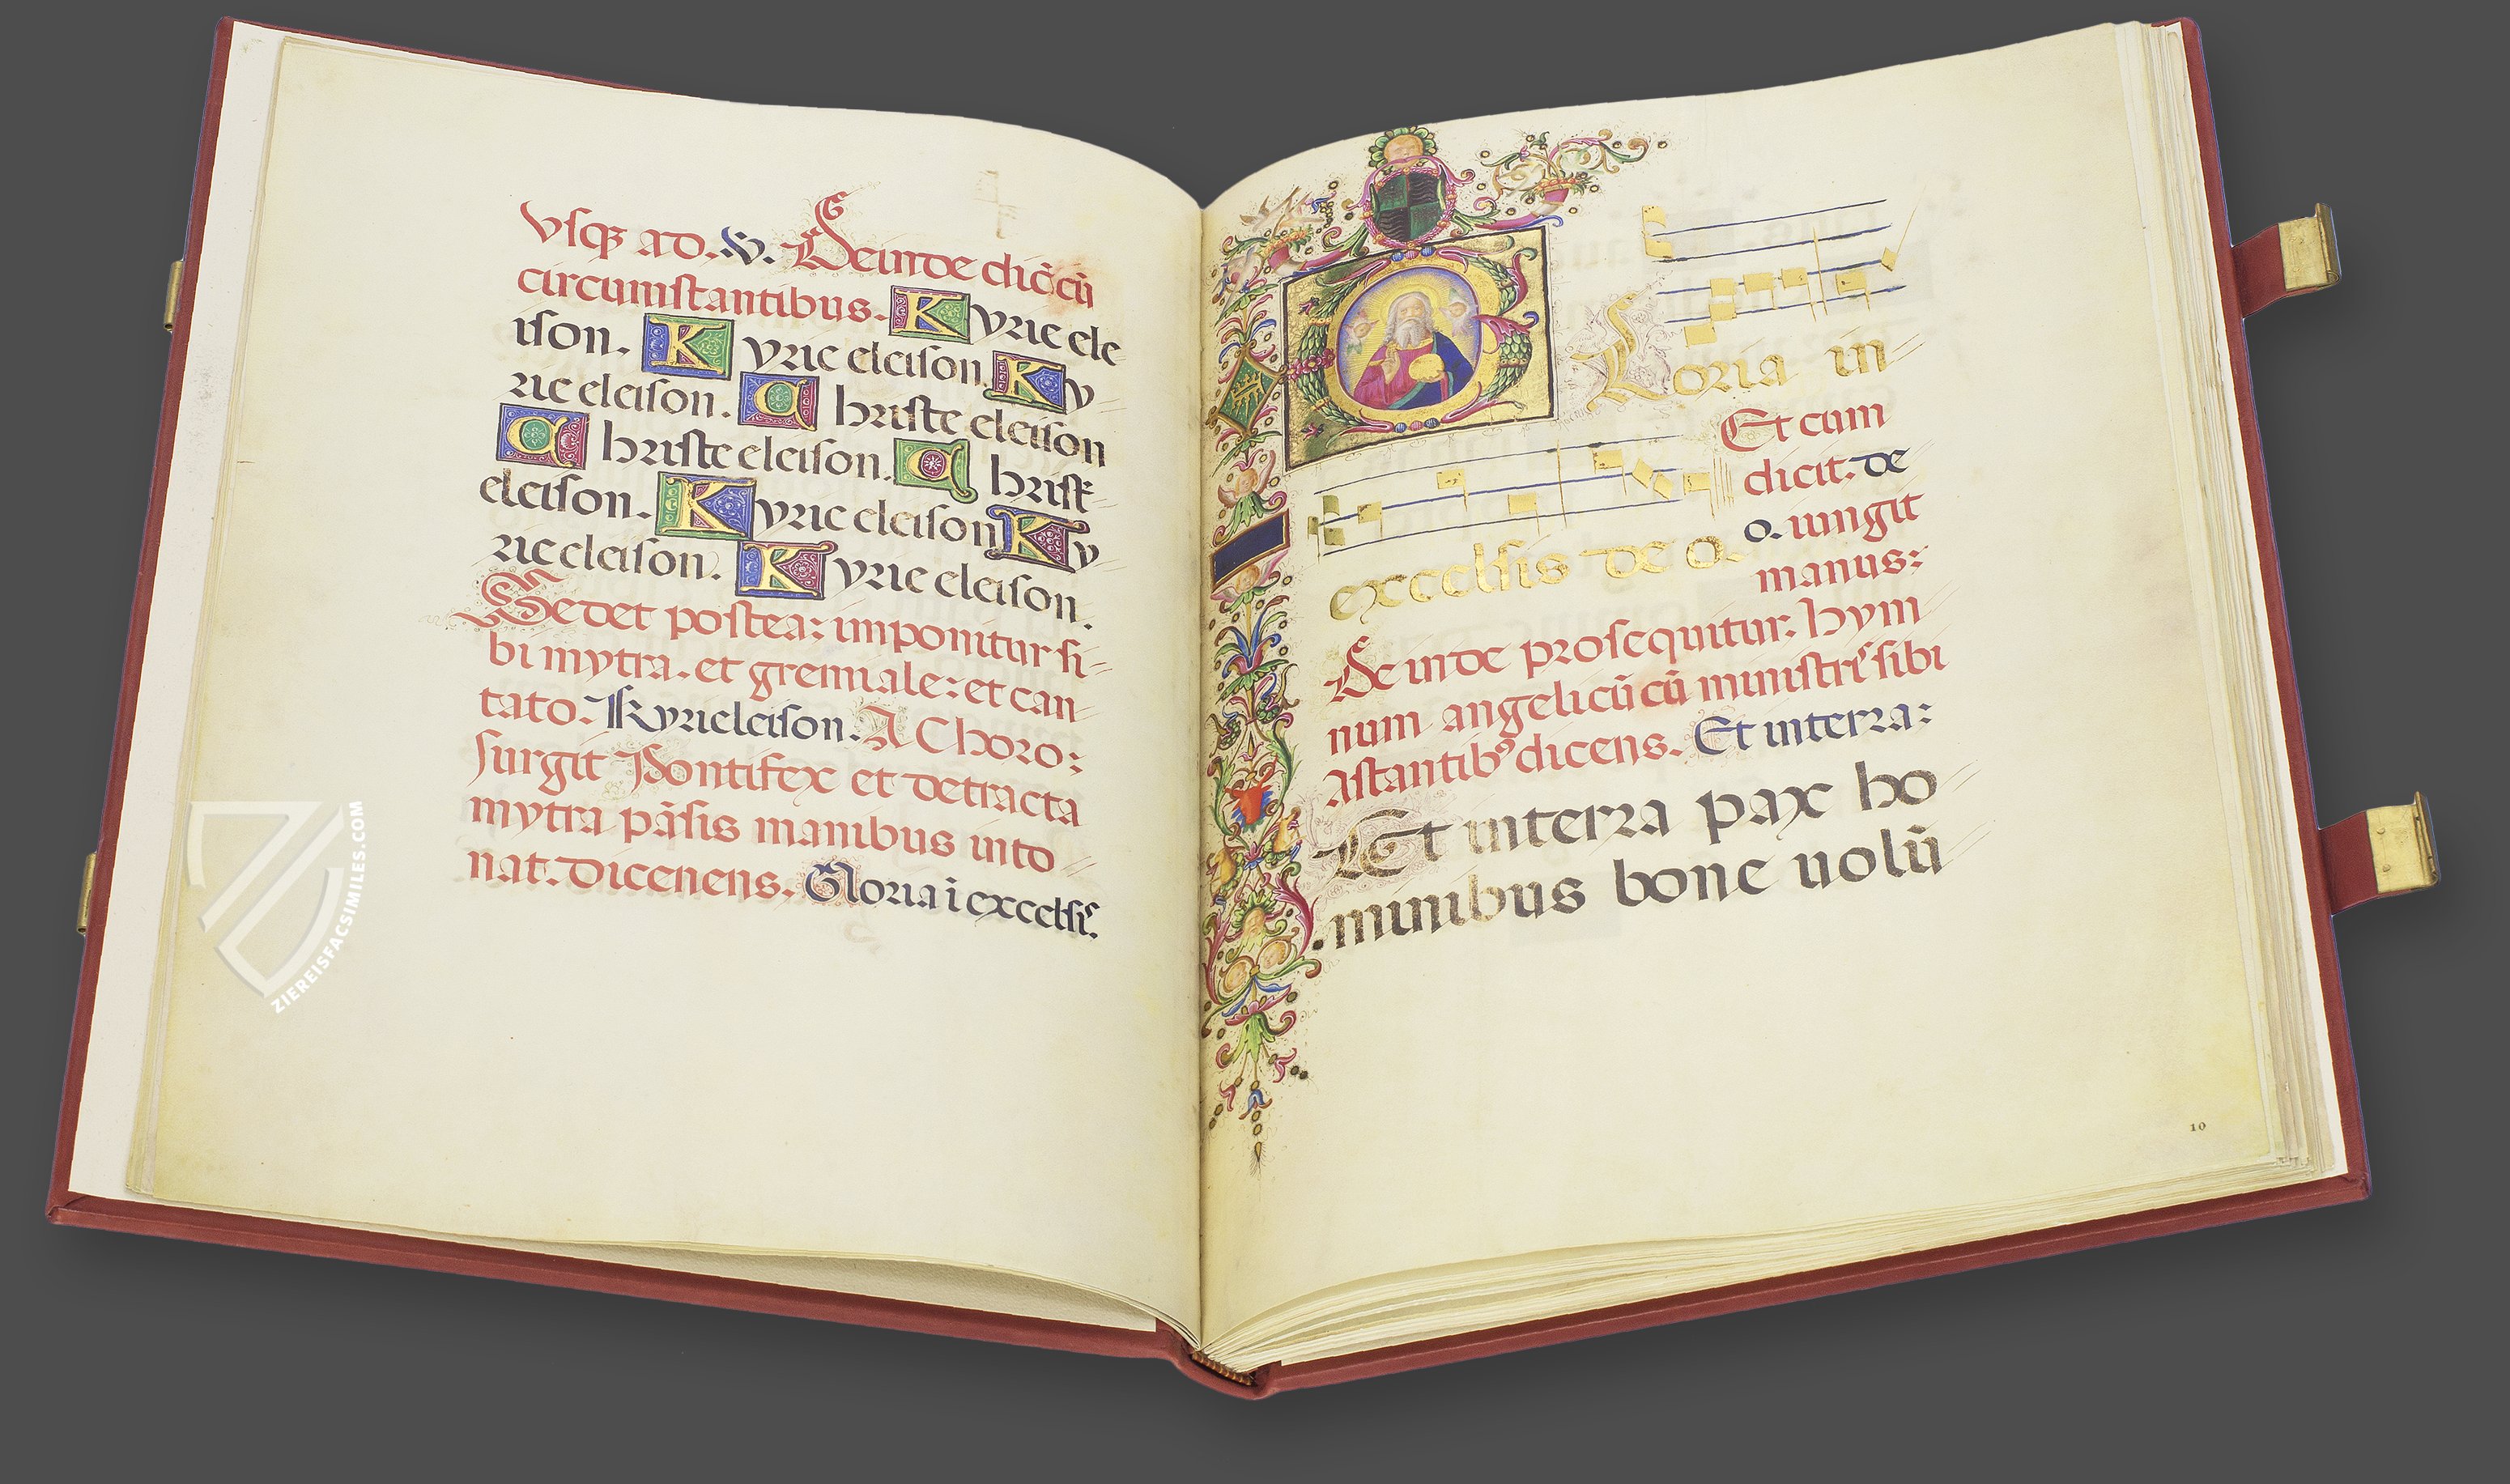 Vsqꝫ ad. V. Deinde dic̄ cū
circumstantibus. Kyrie ele
ison. Kyrie eleison Ky
rie eleison. Christe eleison
Christe eleison. Christe
eleison. Kyrie eleison Ky
rie eleison. Kyrie eleison.
Sedet postea: imponitur si-
bi mytra. et gremiale: et can
tato. Kyrieleison. A Choro:
surgit Pontifex et detracta
mytra pāsis manibus into
nat. dicenens. Gloria ī excelsis.
Gloria in
Et cum
dicit. de
excelsis de o. o. iungit
manus:
Deinde prosequitur. hym
num angelicū cū ministris sibi
astantibꝰ dicens. Et interra:
Et interra pax ho
minibus bone uolū
10
ZIEREISFACSIMILES.COM